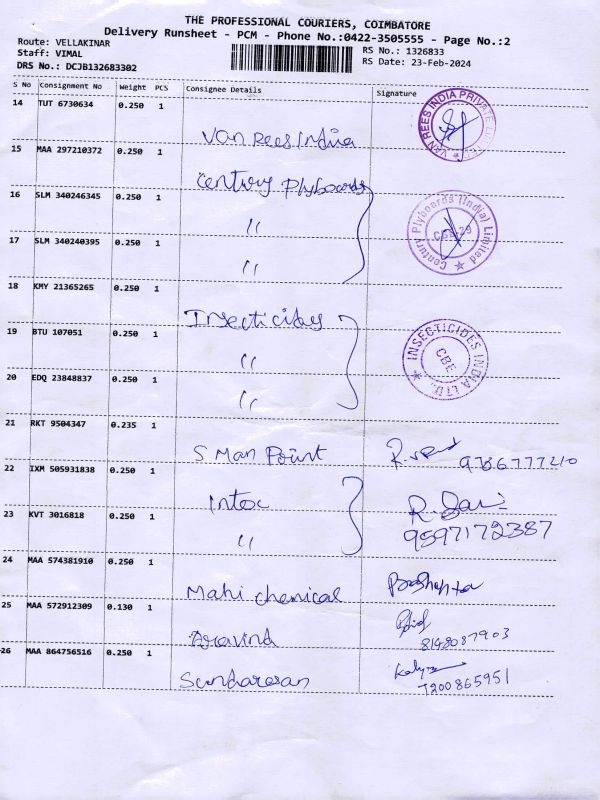 THE PROFESSIONAL COURIERS, COIMBATORE
Delivery Runsheet - PCM - Phone No.:0422-3505555 - Page No.:2
Route: VELLAKINAR
Staff: VIMAL
DRS No.: DCJB132683302
RS No.: 1326833
RS Date: 23-Feb-2024
S No Consignment No Weight PCS Consignee Details Signature
14 TUT 6730634 0.250 1 Van Rees India
VAN REES INDIA PRIVATE
15 MAA 297210372 0.250 1 Century Plyboards
16 SLM 340246345 0.250 1 "
Century Plyboards (India) Limited
17 SLM 340240395 0.250 1 "
18 KMY 21365265 0.250 1 Insecticides
19 BTU 107051 0.250 1 "
INSECTICIDES INDIA LTD.,
CBE
20 EDQ 23848837 0.250 1 "
21 RKT 9504347 0.235 1 S Man Point
22 IXM 505931838 0.250 1 Intec
23 KVT 3016818 0.250 1 " 9597172387
24 MAA 574381910 0.250 1 Mahi chemical
25 MAA 572912309 0.130 1 Aravind 8148087903
26 MAA 864756516 0.250 1 Sundaresan 7200865951